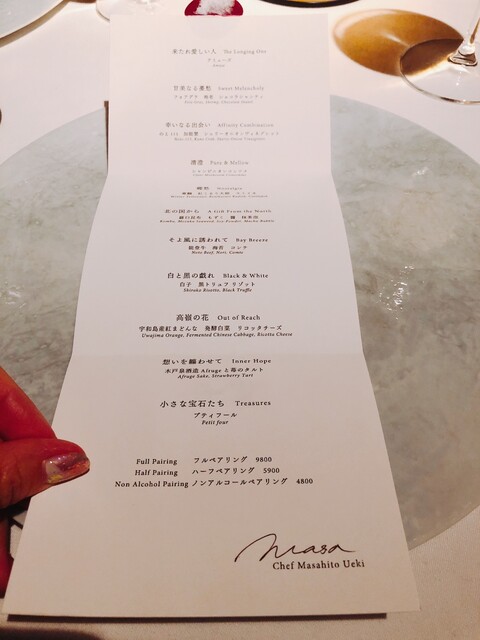 来たれ愛しい人 The Longing One
アミューズ
甘美なる憂鬱 Sweet Melancholy
幸いなる出会い Affinity Combination
清澄 Pure & Mellow
郷愁 Nostalgia
北の国から A Gift From the North
そよ風に誘われて Bay Breeze
能登牛 海苔 コンテ
Noto Beef, Nori, Comte
白と黒の戯れ Black & White
白子 黒トリュフ リゾット
Shirako Risotto, Black Truffle
高嶺の花 Out of Reach
宇和島産紅まどんな 発酵白菜 リコッタチーズ
Uwajima Orange, Fermented Chinese Cabbage, Ricotta Cheese
想いを纏わせて Inner Hope
木戸泉酒造 Afrugeと苺のタルト
Afruge Sake, Strawberry Tart
小さな宝石たち Treasures
プティフール
Petit four
Full Pairing フルペアリング 9800
Half Pairing ハーフペアリング 5900
Non Alcohol Pairing ノンアルコールペアリング 4800
Masa
Chef Masahito Ueki